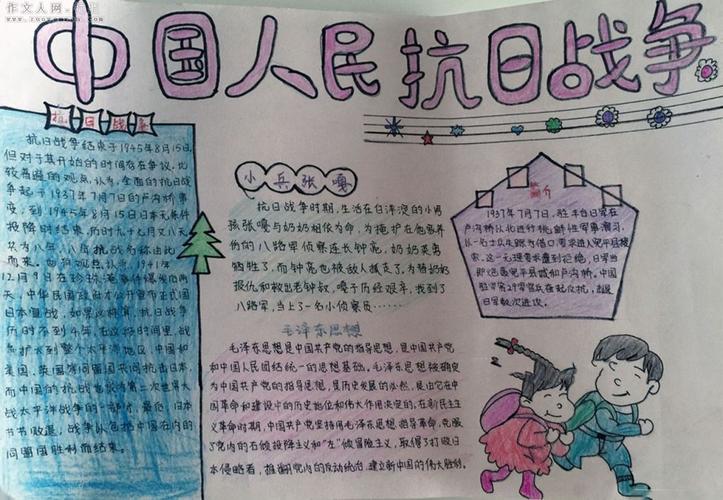 作文人网
中国人民抗日战争
抗日战争
抗日战争结束于1945年8月15日,
但对于其开始的时间存在争议,比
较普遍的观点认为,全面的抗日战
争起于1937年7月7日的卢沟桥事
变,到1945年8月15日日本无条件
投降时结束,历时 月又八天
八年,八年抗战名称由此
而来。也有观点认为,1941年
12月9日在珍珠港事件爆发后两
天,中华民国政府才公开宣布正式
日本宣战,如果这样算,抗日战争
历时不到4年,在这段时间里,战
扩大到整个太平洋地区,中国和
美国、英国等同盟国共同抗击日本,
而中国的抗战也成为第二次世界大
战太平洋战争的一部分,最后,日本
节节败退,战争以包括中国在内的
同盟国胜利而结束。
小兵张嘎
抗日战争时期,生活在白洋淀的小男
孩张嘎与奶奶相依为命,为掩护在他家养
伤的八路军侦察连长钟亮,奶奶英勇
牺牲了,而钟亮也被敌人抓走了,为替奶奶
报仇和救出老钟叔,嘎子历经艰辛,找到了
八路军,当上了一名小侦察员……
毛泽东思想
毛泽东思想是中国共产党的指导思想,是中国共产党
和中国人民团结统一的思想基础,毛泽东思想被确定
为中国共产党的指导思想,是历史发展的必然,是由它在中
国革命和建设中的历史地位和伟大作用决定的,在新民主主
义革命时期,中国共产党坚持用毛泽东思想指导革命,克服
了党内的右倾投降主义和"左"倾冒险主义,取得了打败日
本侵略者,推翻 的反动统治,建立新中国的伟大胜利。
简介
1937年7月7日,驻丰台日军在
卢沟桥以北进行挑衅性军事演习,
以一名士兵失踪为借口,要求进入宛平县搜
索,这一无理要求遭到拒绝,日军当
即 宛平县城和卢沟桥。中国
驻军第29军官兵在 抗击,
日军数次进攻。